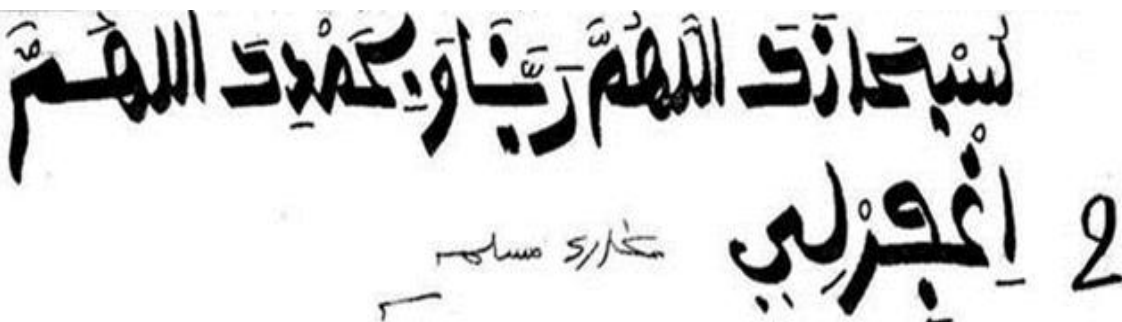 سُبْحَانَكَ اللَّهُمَّ رَبَّنَا وَبِحَمْدِكَ اللَّهُمَّ
2 اِغْفِرْ لِي بخاری مسلم